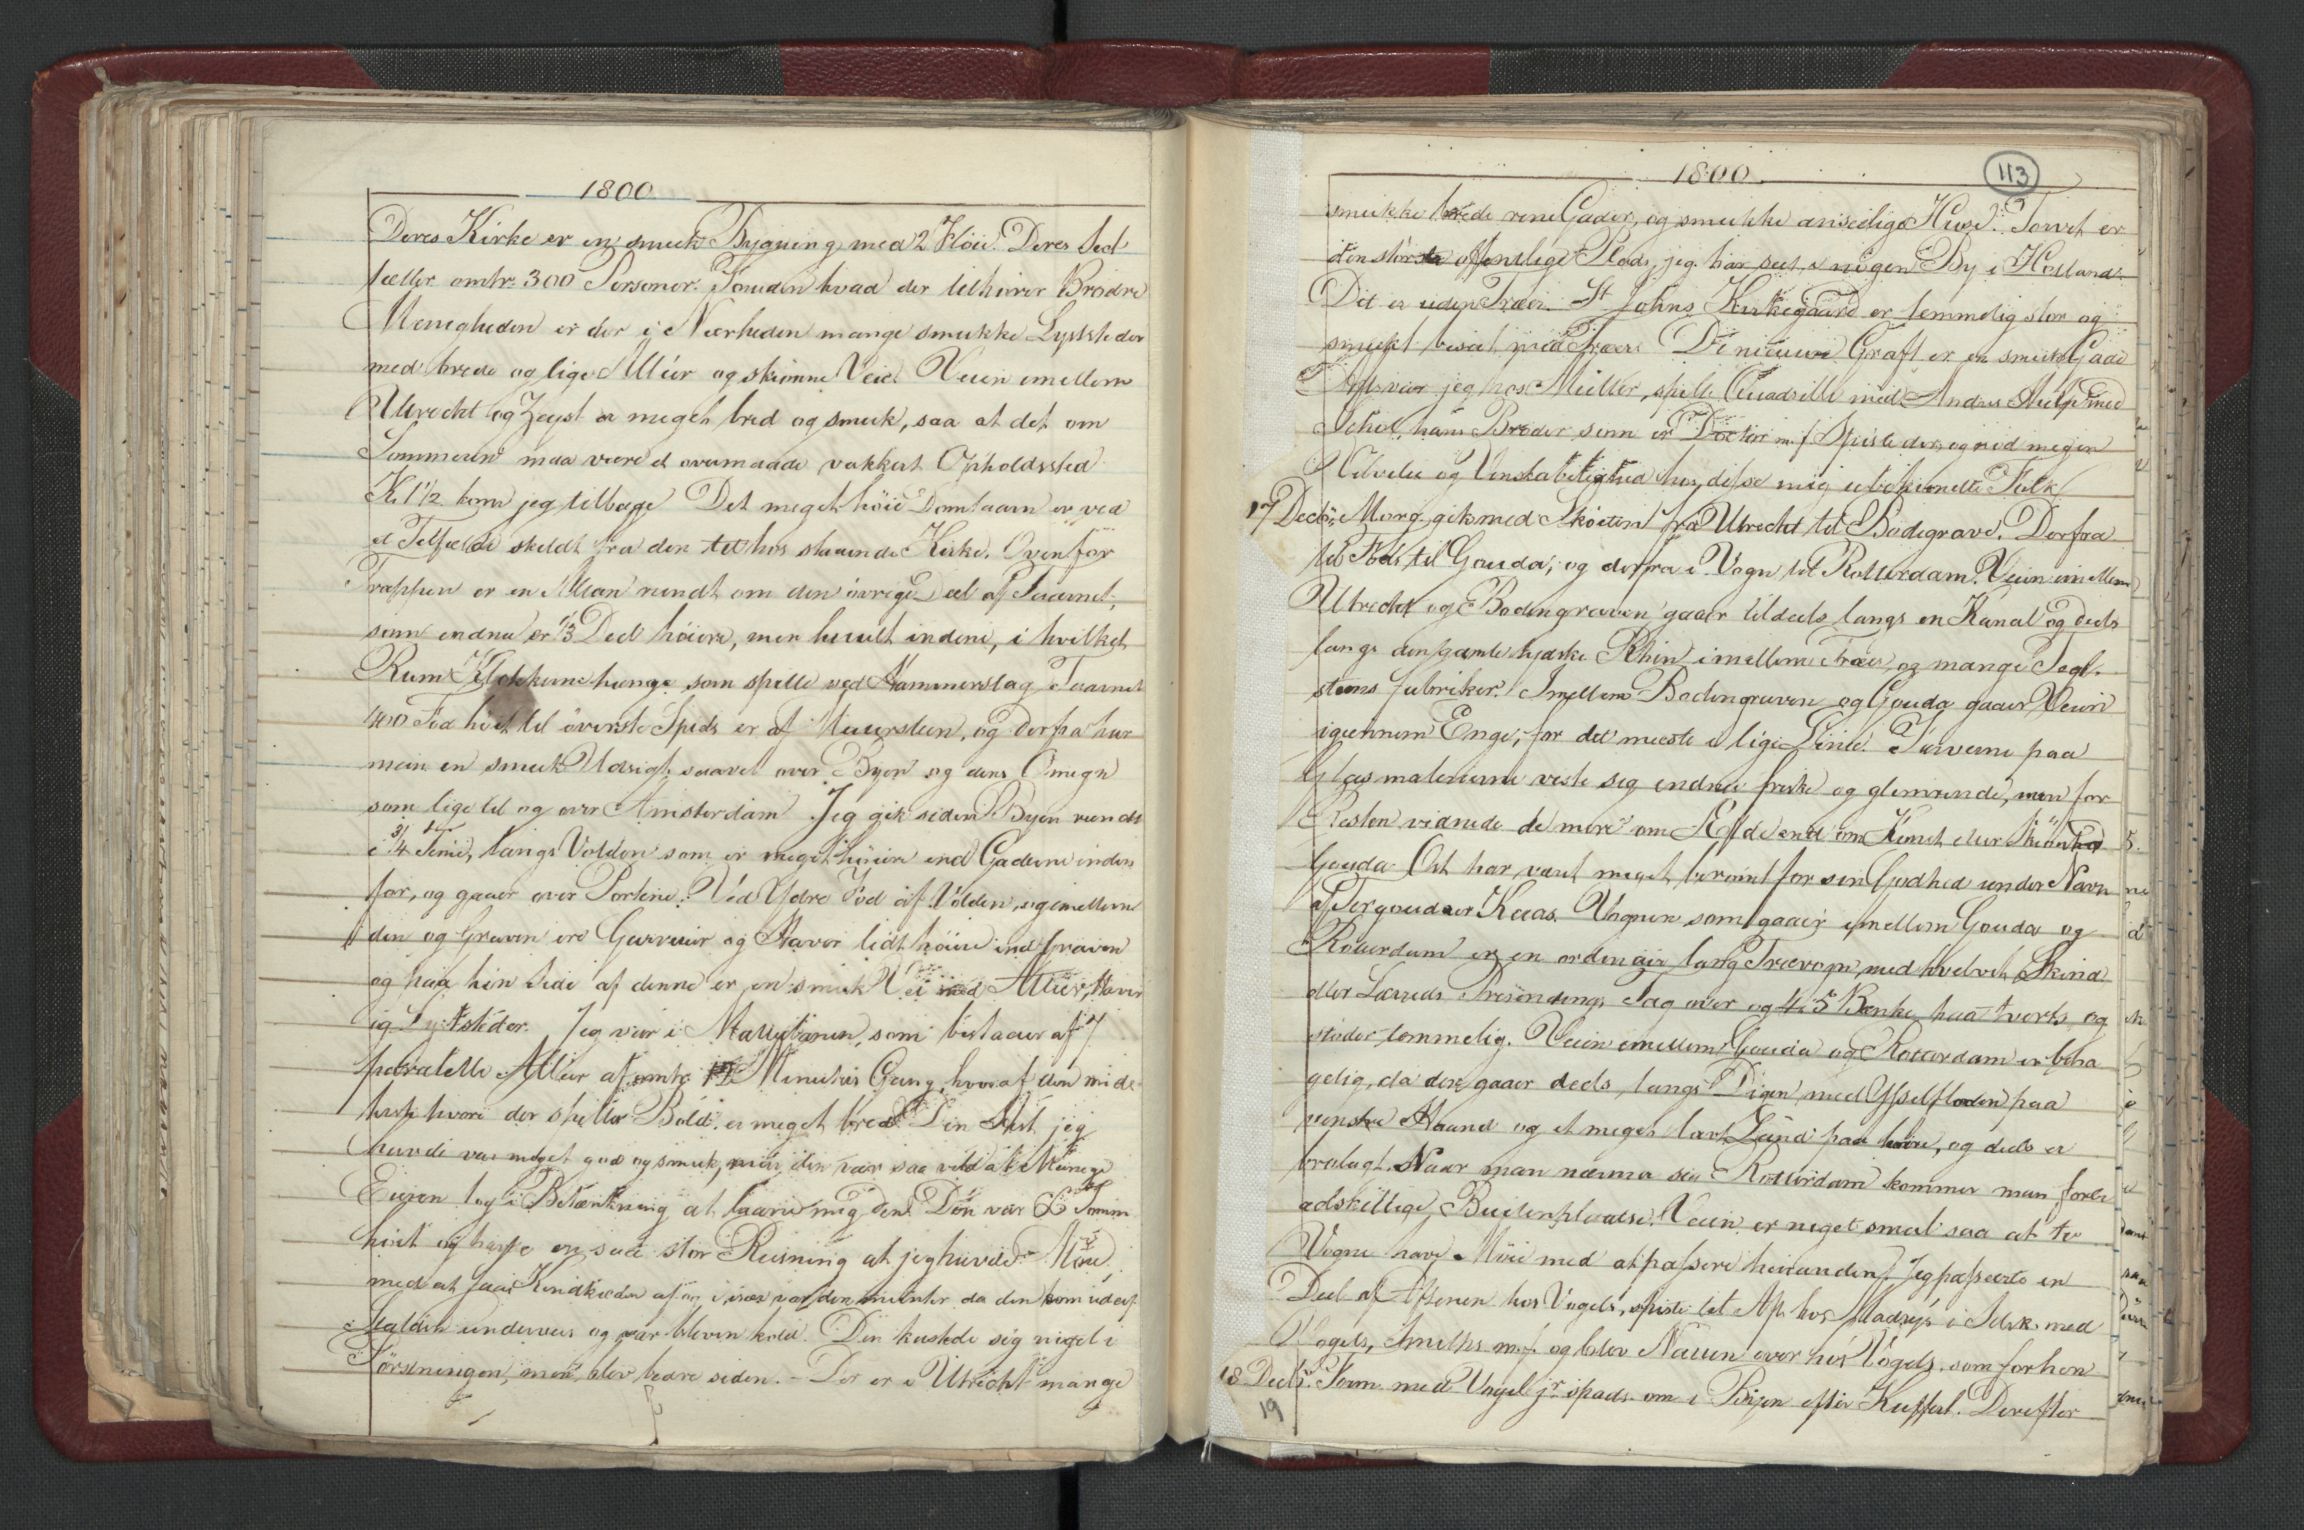 1800.
Deres Kirke er en smuk Bygning med 2 Fløie. Deres Sect
tæller omtr. 300 Personer. Foruden hvad der tilhører Brödre
Menigheden er der i Nærheden mange smukke Lyststeder
med brede og lige Alléer og skjönne Veie. Veien imellem
Utrecht og Zeyst er meget bred og smuk, saa at det om
Sommeren maa være et overmaade vakkert Opholdssted
Kl 1½ kom jeg tilbage Det meget höie Domtaarn er ved
et skildt fra den tæt hos staaende Kirke. Ovenfor
Trappen er en Altan rundt om den övrige Deel af Taarnet,
som endnu er 1/3 Deel höiere, men huult indeni, i hvilket
Rum Klokkerne hænge som spille ved Hammerslag Taarnet
400 Fod höit til överste Spids er af Muursteen, og derfra har
man en smuk Udsigt saavel over Byen og dens Omegn
som lige til og over Amsterdam. Jeg gik siden Byen rundt
i 3/4 Time, langs Volden som er meget höiere end Gaderne inden
for, og gaaer over Portene. Ved Ydre Fod af Volden, og imellem
den og Graven ere og Haver lidt höiere end Graven
og paa hin Side af denne er en smuk Vei med Alléer, Haver
og Lyststeder. Jeg var i Malliebanen, som bestaaer af 7
paralelle Alléer af omtr. Minuters Gang, hvoraf den mid
terste hvori der spilles Bold, er meget bred Den Hest jeg
havde var meget god og smuk, men den var saa vild at
Eieren tog i Betænkning at laane mig den. Den var
hvit og havde en saa stor Reisning at jeg havde Möie
med at faae Kindkieden af og især var den munter da den kom ud af
Stalden underveis og var bleven kold. Den kastede sig noget i
Förstningen, men blev bedre siden. - Der er i Utrecht mange
1800.
113
smukke brede rene Gader, og smukke anseelige Huse. Torvet er
den störste offentlige Plads, jeg har seet i nogen By i Holland.
Det er uden Træer. St Johns Kirkegaard er temmelig stor og
smukt besat med Træer. De nieuwe Graft er en smuk Gade
Aft. var jeg hos Müller, spilte Quadrille med Andre
hans Broder som er Doctor m. f. Spiste der, og nöd megen
Velvilie og Venskabelighed hos disse mig ubekiendte Folk
17 Decbr. Morg. gik med Skøiten fra Utrecht til Bodegrave. Derfra
til Fods til Gouda, og derfra i Vogn til Rotterdam. Veien imellem
Utrecht og Bodengraven gaaer tildeels langs en Kanal og deels
langs den gamle tydske Rhin imellem Træer og mange Tegl-
steens fabriker. Imellem Bodengraven og Gouda gaaer Veien
igiennem Enge, for det meeste i lige Linie. Farverne paa
Glasmalerierne viste sig endnu friske og glimrende, men for
Resten vidnede de mere om Ælde end om Kunst eller Skiönhed
Gouda Ost har været meget berömt for sin Godhed under Navn
af Tergoudaer Kaas. Vognen som gaaer imellem Gouda og
Rotterdam er en ordinair lang Trævogn med hvelvet Skind
eller Lærreds Presennings Tag over og 4 à 5 Bænke paa tværs, og
stöder temmelig. Veien imellem Gouda og Rotterdam er beha
gelig, da den gaaer deels langs Digen med Ysselfloden paa
venstre Haand og et meget lavt Land paa høire, og deels er
brolagt. Naar man nærmer sig Rotterdam kommer man forbi
adskillige Buitenplaatse. Veien er noget smal saa at to
Vogne have Möie med at passere hinanden. Jeg passerte en
Deel af Aftenen hos Vogels, spiste til Af. hos i Selsk. med
Vogels, Smiths m.f. og blev Natten over hos Vogels, som forhen
18 Decbr. Form. med Vogel jr. spads. om i Byen efter Kuffert. Derefter
19